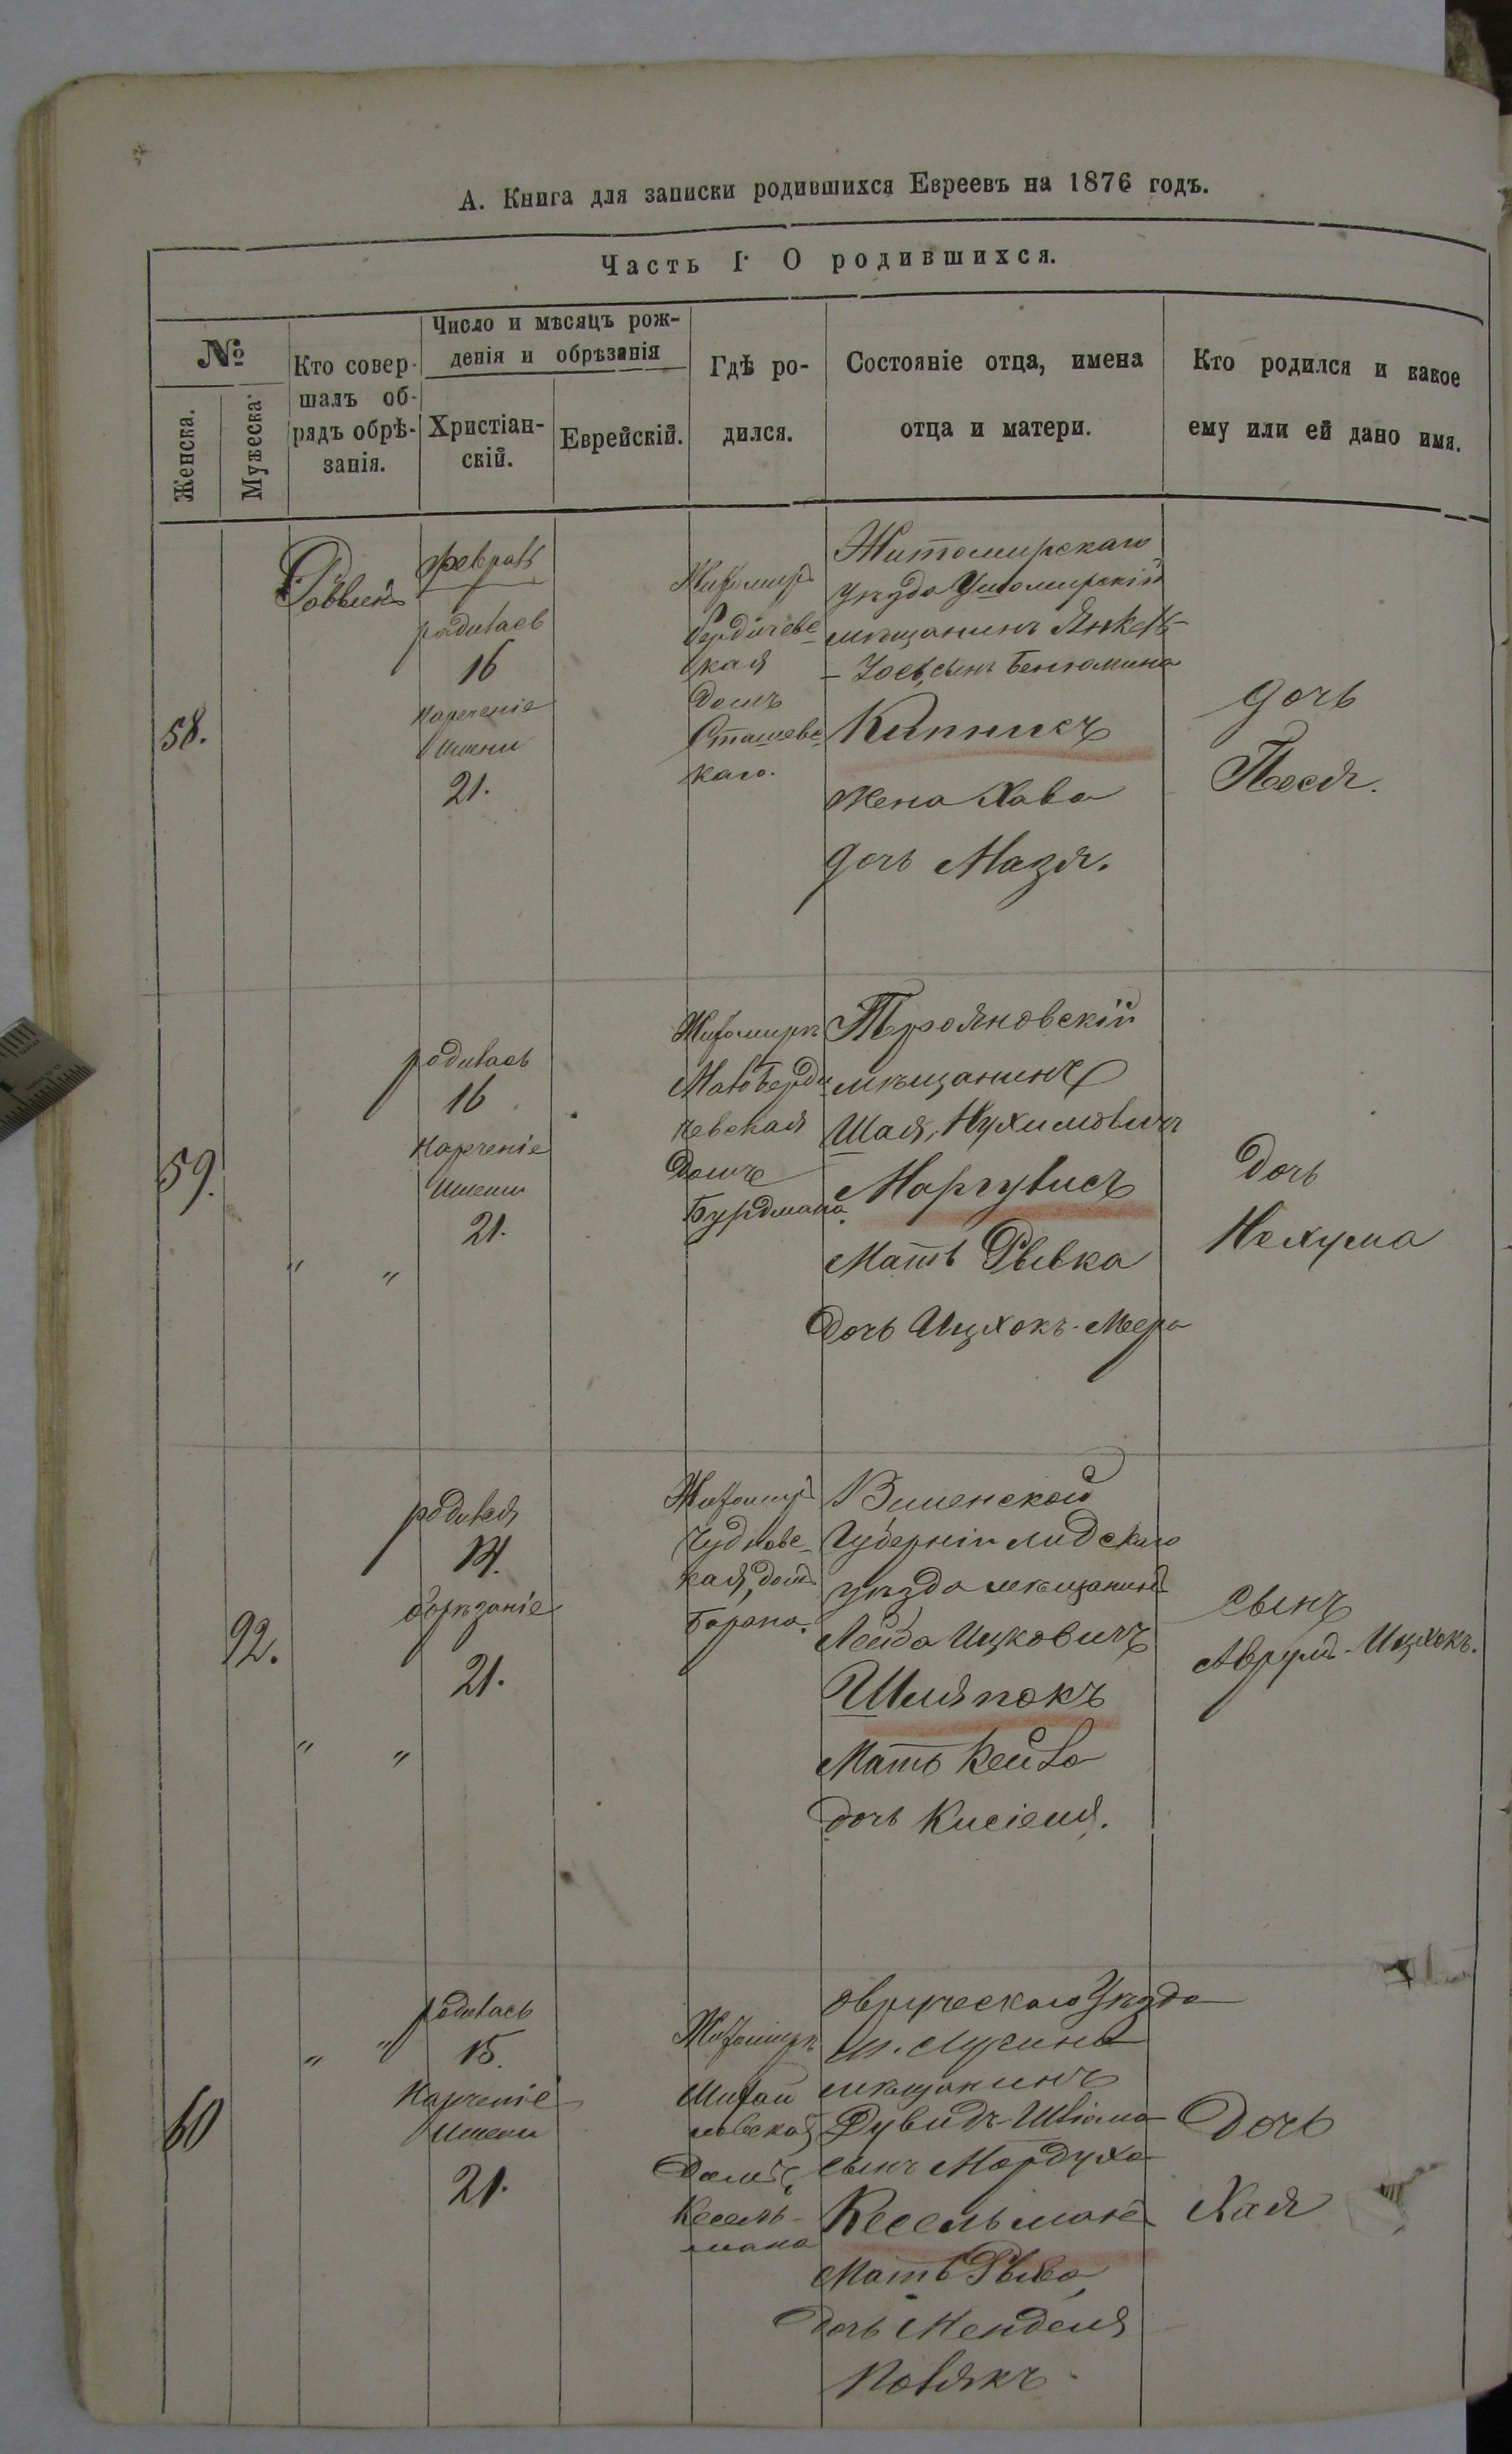 А. Книга для записки родившихся Евреевъ на 1876 годъ.
Часть I. О родившихся.
№
Женска.
Мужеска.
Кто совер-
шалъ об-
рядъ обрѣ-
занія.
Число и мѣсяцъ рож-
денія и обрѣзанія
Христіан-
скій.
Еврейскій.
Гдѣ ро-
дился.
Состояніе отца, имена
отца и матери.
Кто родился и какое
ему или ей дано имя.
58.
Раввинъ
февраль
родилась
16
Нареченіе
Имени
21.
Житомиръ
Бердичевс
кая
домъ
Сташевс
каго.
Житомирскаго
уѣзда Ушомирскій
мѣщанинъ Янкель
- Іосъ, сынъ Бенюмина
Кипнисъ
жена Хава
дочь Мазя.
дочь
Песя.
59.
"
"
родилась
16
Нареченіе
Имени
21.
Житомиръ
Мало Берди
чевская
Домъ
Бурдмана.
Трояновскій
мѣщанинъ
Шая, Нухимовичъ
Маргулисъ
Мать Рывка
Дочь Ицхокъ-Меера
Дочь
Нехума
92.
"
"
родился
14.
обрѣзаніе
21.
Житомиръ
Чудновс-
кая, домъ
Барана.
Виленской
Губерніи Лидскаго
уѣзда мѣщанинъ
Лейба Ицковичъ
Шляпокъ
Мать Бейла
дочь Кисіеля.
сынъ
Аврумъ-Ицхокъ.
60
"
"
родилась
15.
Нареченіе
Имени
21.
Житомиръ
Михай
ловская
Домъ
Кесель-
мана
Овручскаго Уѣзда
м. Лугинъ
мѣщанинъ
Дувидъ-Шліома
сынъ Мордуха
Кесельманъ
Мать Рыва,
дочь Менделя
Полякъ
Дочь
Хая